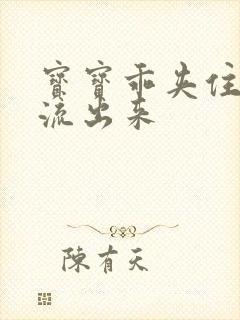 寶寶乖夹住
流出来
陳有天